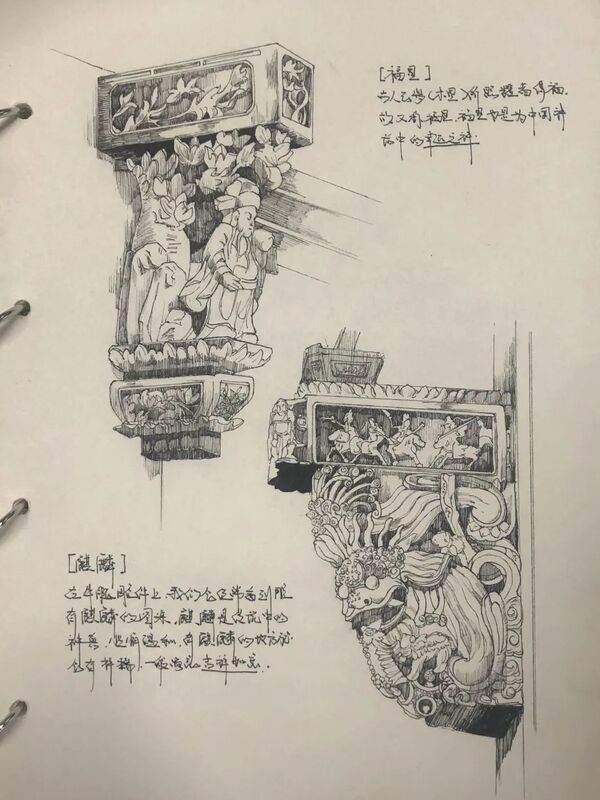 [福星]
古人云岁(木星)所照耀者得福.
故又称福星.福星也是为中国神
话中的
[麒麟]
在牛腿雕件上,我们会经常看到雕
有麒麟的图案.麒麟是传说中的
神兽,性情温和,有麒麟的地方就
会有祥瑞,一般寓意吉祥如意.